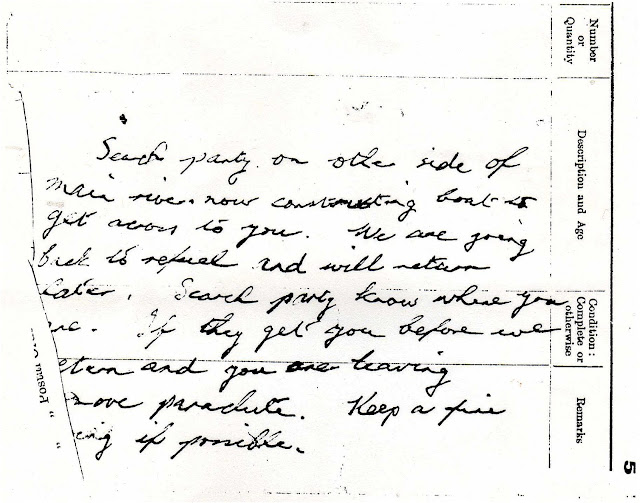 Search party on other side of
main river now constructing boat to
get across to you. We are going
back to refuel and will return
later. Search party know where you
are. If they get you before we
eturn and you are leaving
move parachute. Keep a fire
ing if possible.
Number
or
Quantity
Description and Age
Condition:
Complete or
otherwise
Remarks
5